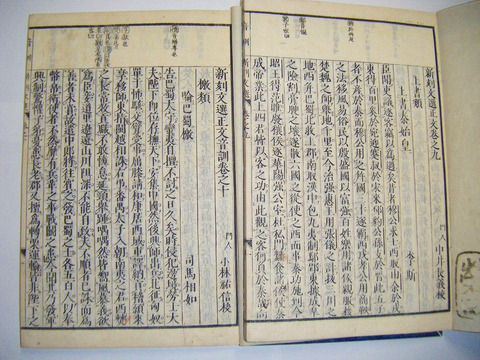 新刻文選正文音訓卷之九
門人
上書類
上書秦始皇
李斯
臣聞吏議逐客竊以爲過矣昔者穆公求士西取由余於戎
東得百里奚於宛迎蹇叔於宋來邳豹公孫支於晉此五人
者不產於秦而穆公用之并國三十遂霸西戎孝公用商鞅
之法移風易俗民以殷盛國以富彊百姓樂用諸侯親服獲
楚魏之師舉地千里至今治彊惠王用張儀之計拔三川之
地西并巴蜀北收上郡南取漢中包九夷制鄢郢東據成皋
之險割膏腴之壤遂散六國之從使之西面事秦功施到今
昭王得范雎廢穰侯逐華陽彊公室杜私門蠶食諸侯使秦
成帝業此四君者皆以客之功由此觀之客何負於秦哉向
新刻文選正文音訓卷之十
門人 小林祐信校
檄類
喻巴蜀檄
司馬相如
告巴蜀太守蠻夷自擅不討之日久矣時侵犯邊境勞士大
夫陛下即位存撫天下安集中國然後興師出兵北征匈奴
單于怖駭交臂受事屈膝請和康居西域重譯納貢稽首來
享移師東指閩越相誅右弔番禺太子入朝南夷之君西僰
之長常效貢職不敢惰怠延頸舉踵喁喁然皆嚮風慕義欲
爲臣妾道里遼遠山川阻深不能自致夫不順者已誅而爲
善者未賞故遣中郎將往賓之發巴蜀之士各五百人以奉
幣帛衛使者不然靡有兵革之事戰鬭之患今聞其乃發軍
興制驚懼子弟憂患長老郡又擅爲轉粟運輸皆非陛下之